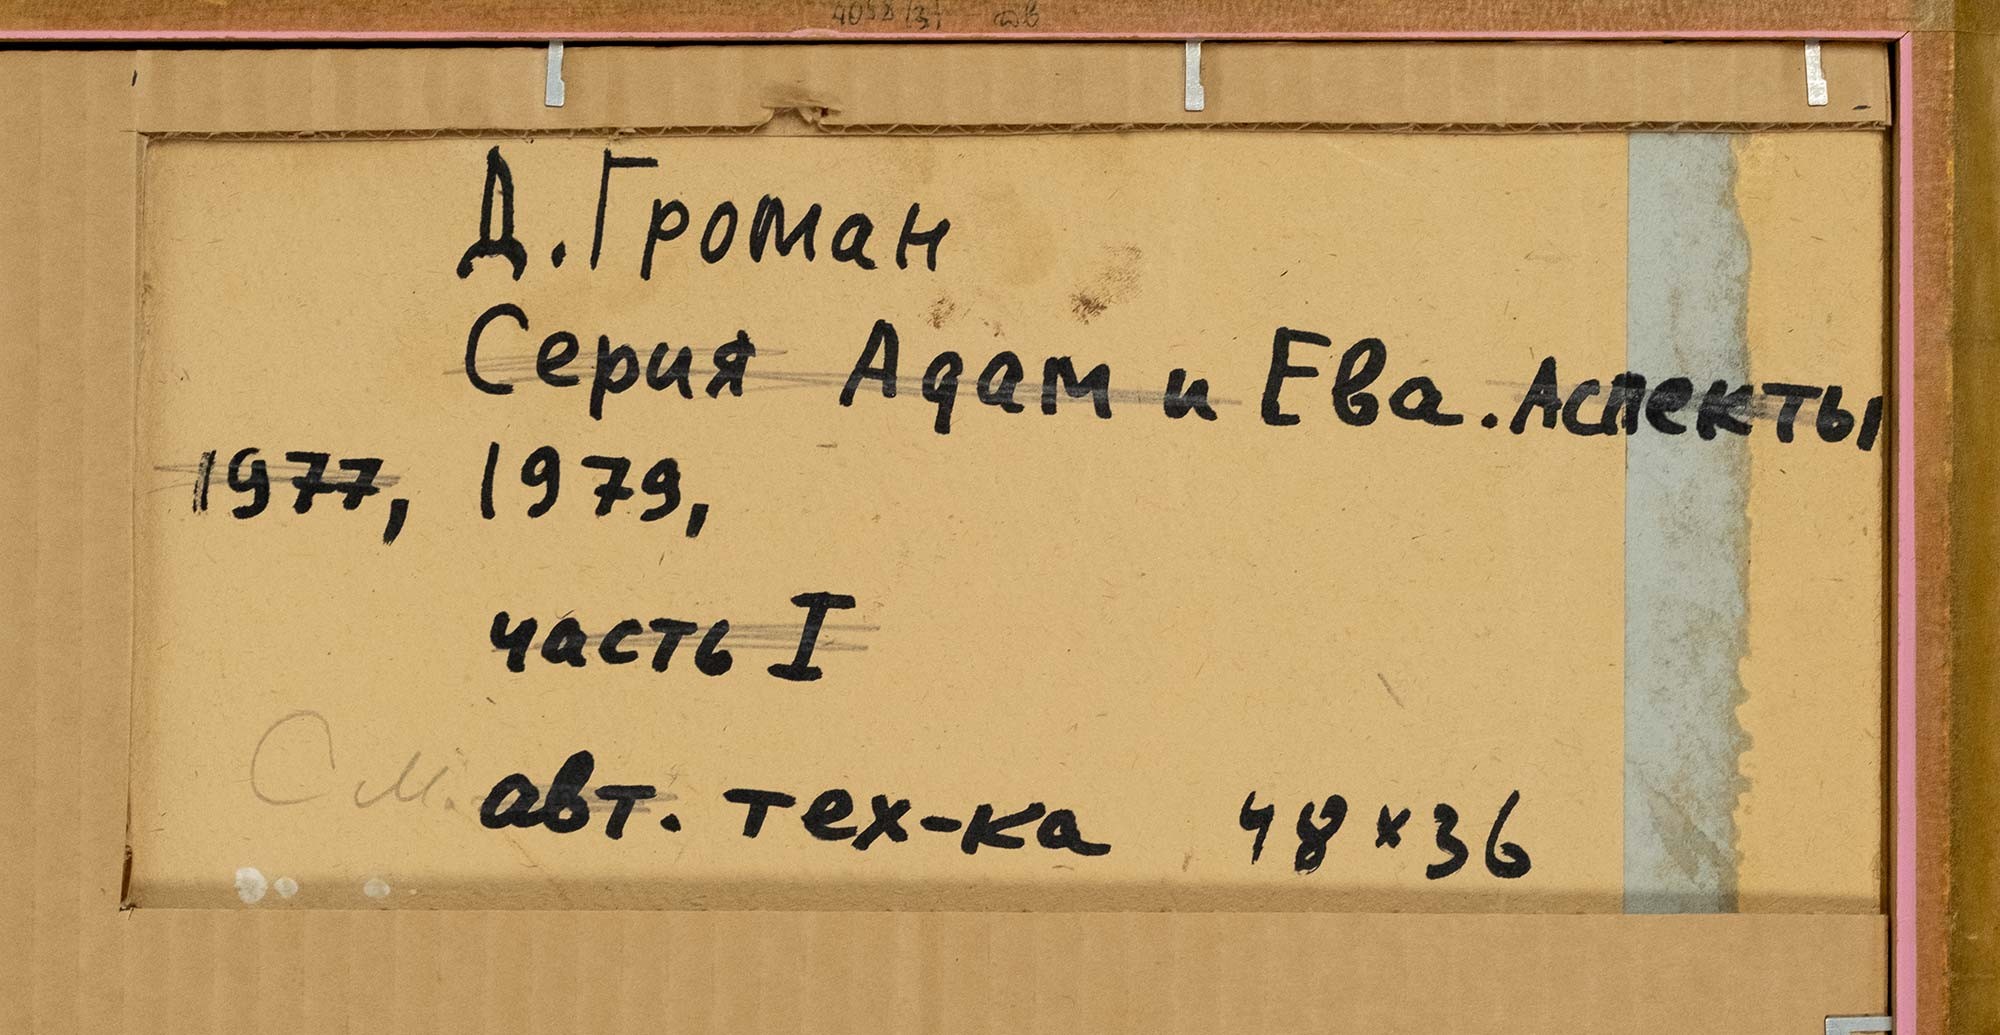 Д. Громан
Серия Адам и Ева. Аспекты
1977, 1979,
часть I
См. авт. тех-ка 48 x 36